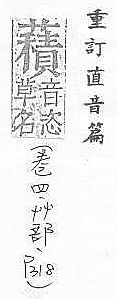 重訂直音篇
𧂐音恣草名
(卷四、艸部、P318)